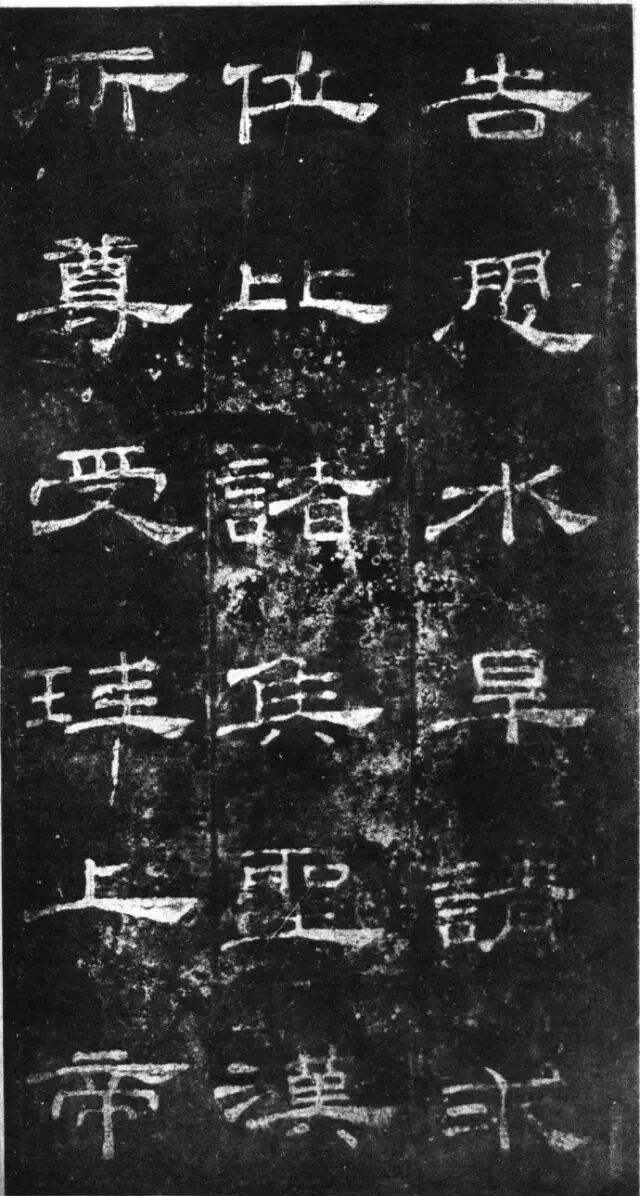 告愬水旱請求
位比諸矦聖漢
所尊受珪上帝